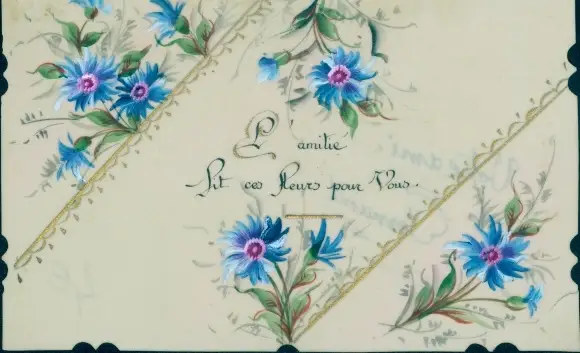 L'amitié
Fit ces fleurs pour Vous.